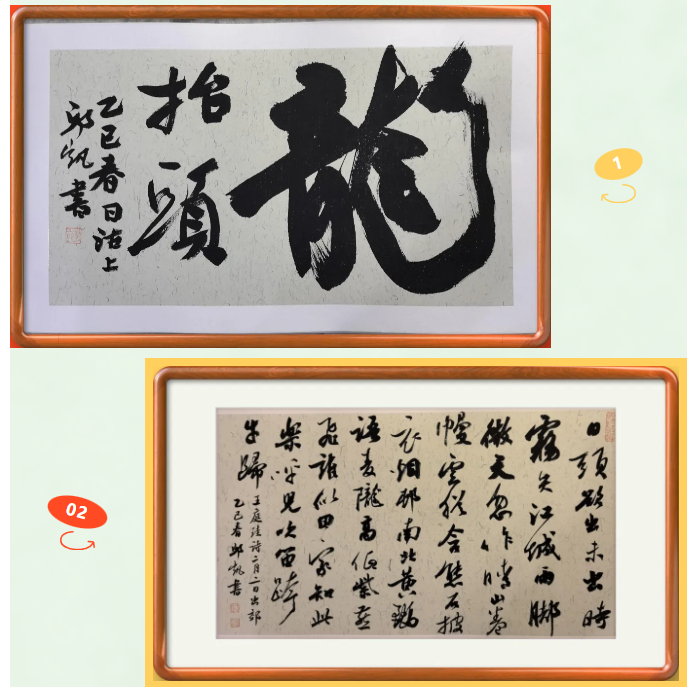 龍
抬頭
乙巳春日沽上
書
1
02
日頭欲出未出時
霧失江城雨脚
微天忽作晴山卷
幔雲猶含態石披
衣烟邨南北黄鸝
語麦隴高低紫燕
飛誰似田家知此
樂呼兒吹笛跨
牛歸
王庭珪詩二月二日出郊
乙巳春
書